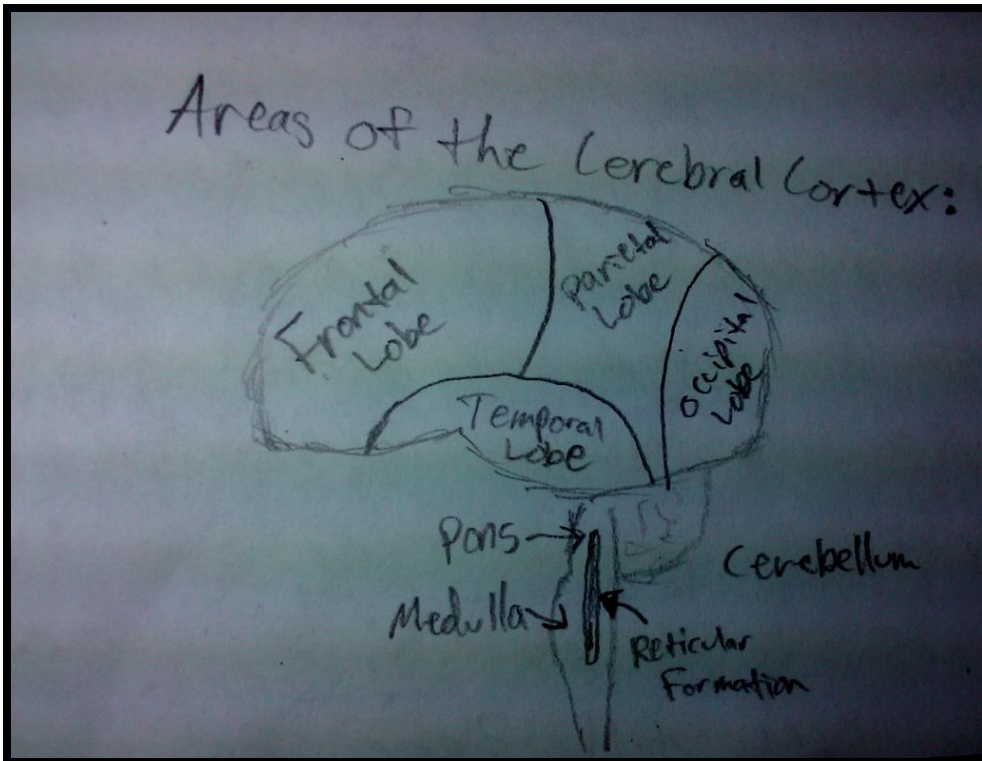 Areas of the Cerebral Cortex:
Frontal
Lobe
Parietal
Lobe
Occipital
Lobe
Temporal
Lobe
Pons
Medulla
Cerebellum
Reticular
Formation